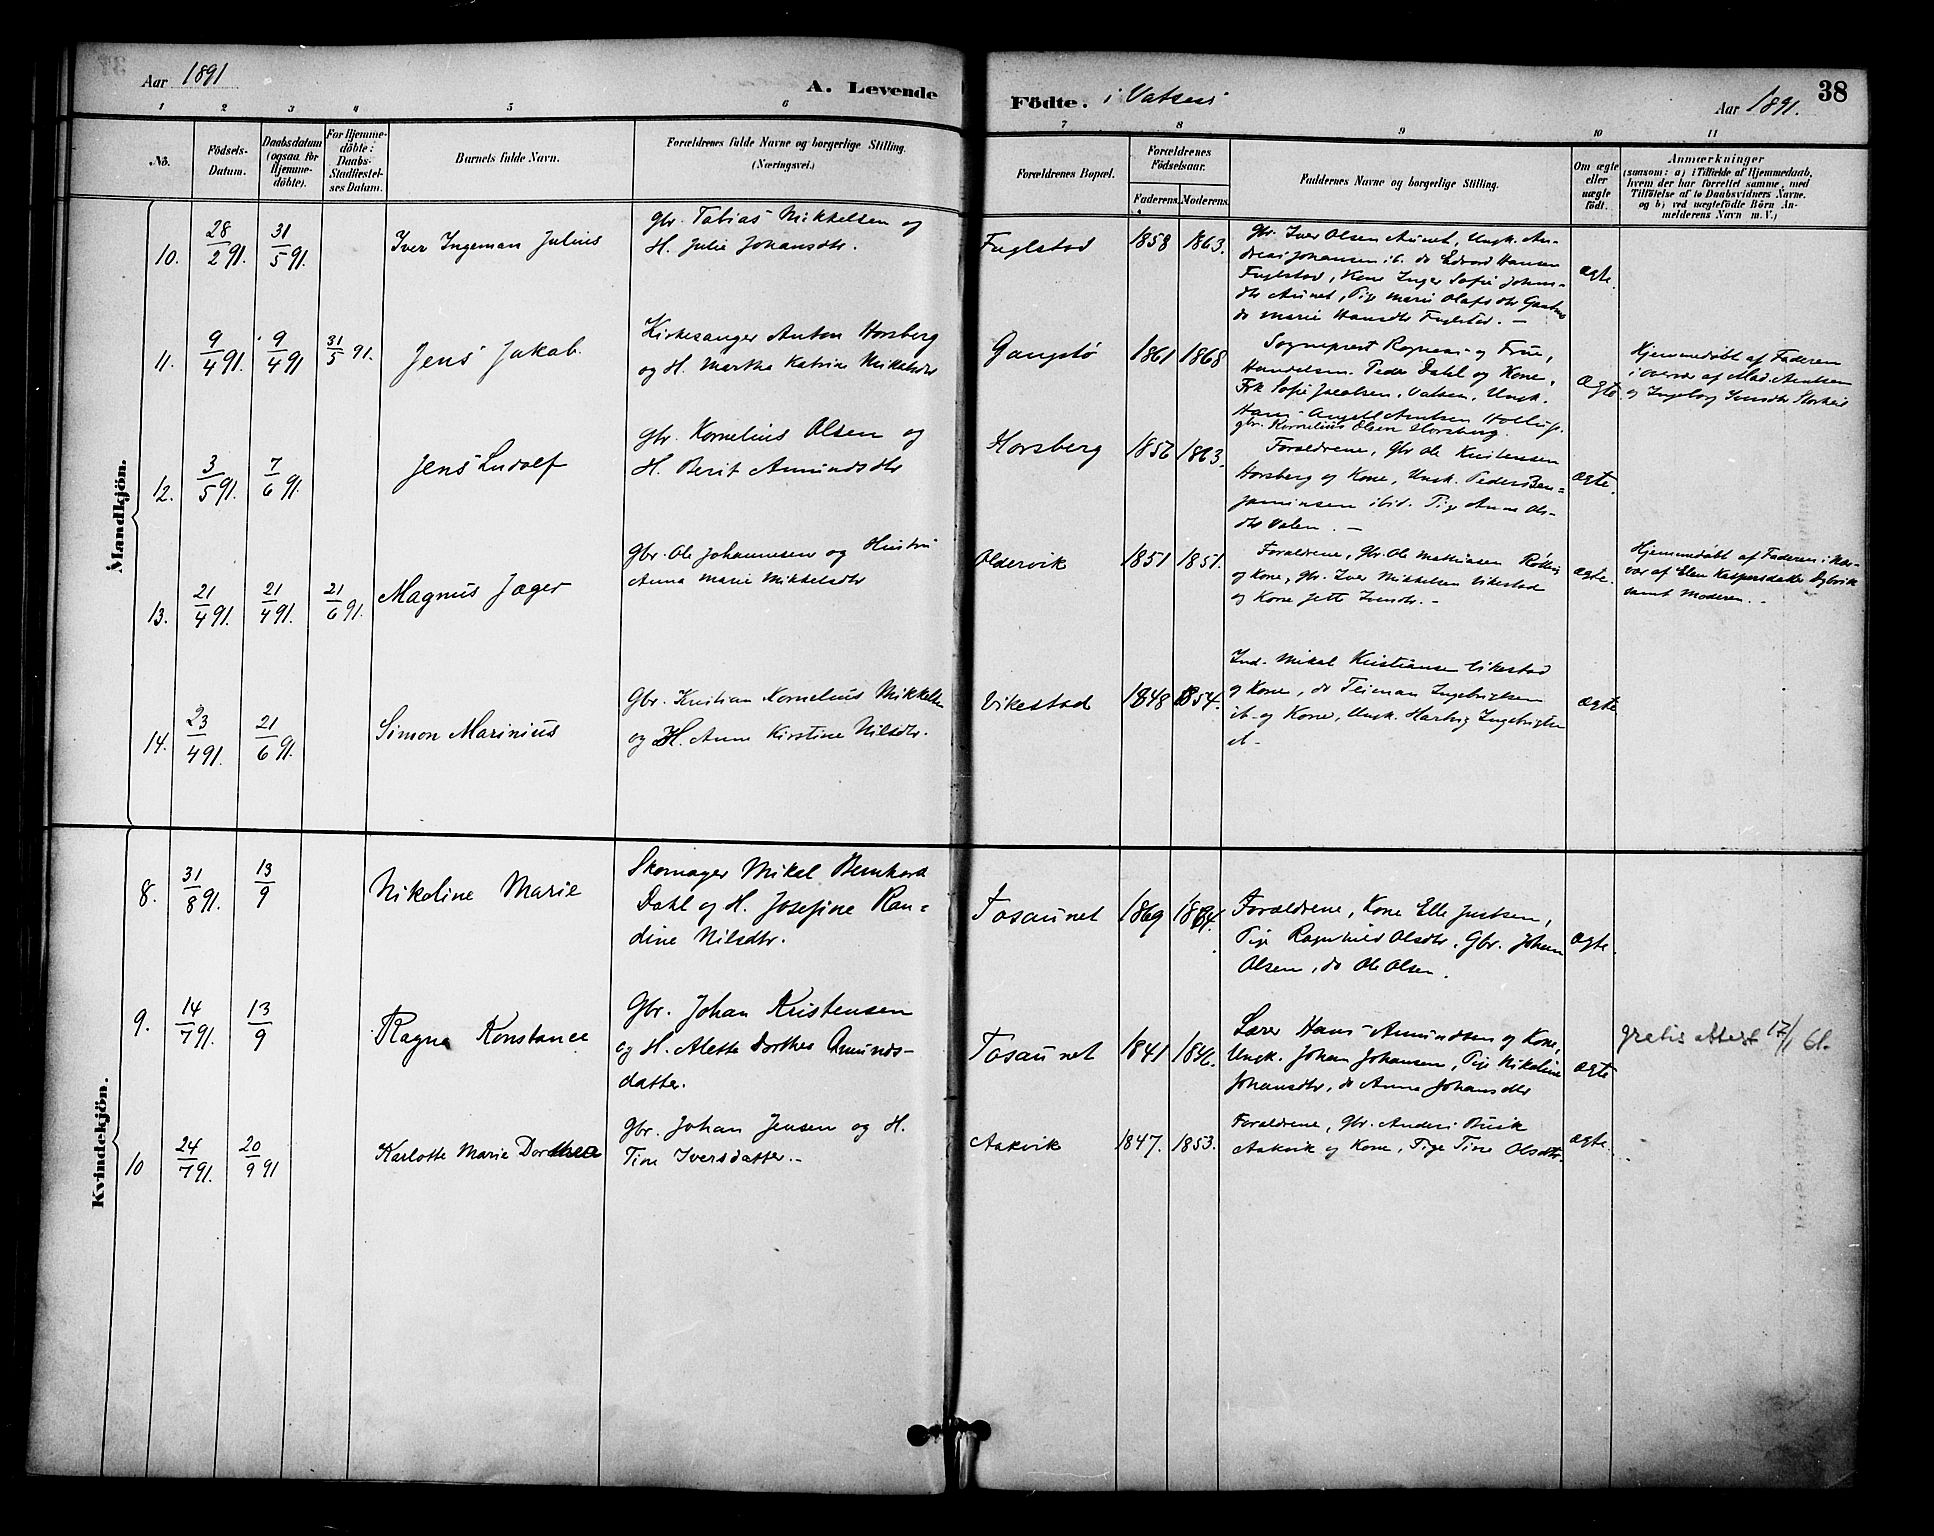 Aar 1891
A. Levende
Födte. i Vatsen
Aar 1891.
38
1 2 3 4 5 6 7 8 9 10 11
No.
Födsels-
Datum.
Daabsdatum
(ogsaa for
Hjemme-
döbte).
For Hjemme-
döbte:
Daabs-
Stadfæstel-
ses Datum.
Barnets fulde Navn.
Forældrenes fulde Navne og borgerlige Stilling.
(Næringsvei.)
Forældrenes Bopæl.
Forældrenes
Födselsaar.
Faderens. Moderens.
Faddernes Navne og borgerlige Stilling.
Om ægte
eller
uægte
født.
Anmærkninger
(saasom: a) i Tilfælde af Hjemmedaab,
hvem der har forrettet samme, med
Tilföielse af to Daabsvidners Navne.
og b) ved uægtefödte Börn An-
melderens Navn m. V.)
Mandkjön.
10. 28/2 91. 31/5 91. Iver Ingeman Julius
Gbr. Tobias Mikkelsen og
H. Julie Johansdtr.
Fuglstad 1858 1863.
Gbr. Iver Olsen Aunet, Ungk. An-
dreas Johansen ib. do Edvard Hansen
Fuglstad, Kone Inger Sofie Johans-
dtr Aunet, Pige Marie Olafsdtr
do Marie Hansdtr Fuglstad. —
ægte.
11. 9/4 91. 9/4 91 31/5 91. Jens Jakob.
Kirkesanger Anton Horsberg
og H. Martha Katrine Mikkelsdtr
Gangstø 1861 1868
Sogneprest Rognaas og Frue,
Handelsm. Peder Dahl og Kone,
Frk Sofie Jacobsen, Vatsen, Ungk.
Hans Angell Arntsen
gbr. Kornelius Olsen Horsberg.
ægte
Hjemmedøbt af Faderen
i overvær af Mad. Arntsen
og Ingeborg
12. 3/5 91. 7/6 91. Jens Ludolf
Gbr. Kornelius Olsen og
H. Berit Amundsdtr
Horsberg 1856 1863.
Forældrene, Gbr Ole Kristensen
Horsberg og Kone, Ungk. Peder Ben-
jaminsen ibid. Pige Anne Ols-
dtr Valen. —
ægte.
13. 21/4 91. 21/4 91. 21/6 91. Magnus Jæger
Gbr. Ole Johannesen og Hustru
Anna Marie Mikkelsdtr
Oldervik 1851 1851.
Forældrene, Gbr. Ole Mathiasen
og Kone, Gbr. Iver Mikkelsen Vikestad
og Kone Jette —
ægte.
Hjemmedøbt af Faderen i Nær-
vær af Elen Kaspersdatter
samt Moderen. —
14. 23/4 91. 21/6 91. Simon Marinius
Gbr. Kristian Kornelius Mikkelsen
og H. Anne Kirstine Nilsdtr.
Vikestad 1848 1854.
Ind. Mikal Kristiansen Vikestad
og Kone, do Teiman Ingebrigtsen
ib. og Kone, Ungk. Hartvig Ingebrigtsen
ib —
ægte
Kvindekjön.
8. 31/8 91. 13/9 Nikoline Marie
Skomager Mikal Bernhard
Dahl og H. Josefine Ran-
dine Nilsdtr.
Tosaunet 1869
Forældrene, Kone Elle Justsen,
Pige Ragnhild Olsdtr, Gbr. Johan
Olsen, do Ole Olsen.
ægte.
9. 14/7 91. 13/9 Ragna Konstance
Gbr. Johan Kristensen
og H. Alette Dorthea Amunds-
datter.
Tosaunet 1841 1846.
Lærer Hans Amundsen og Kone,
Ungk. Johan Johansen, Pige Nikoline
Johansdtr, do Anna Johansdtr
ægte
gratis attest 17/1 61.
10 24/7 91. 20/9 91 Karlotte Marie Dorthea
Gbr. Johan Jensen og H.
Tine Iversdatter. —
Aakvik 1847. 1853.
Forældrene, Gbr. Anders Busk
Aakvik og Kone, Pige Tine Olsdtr.
ægte.